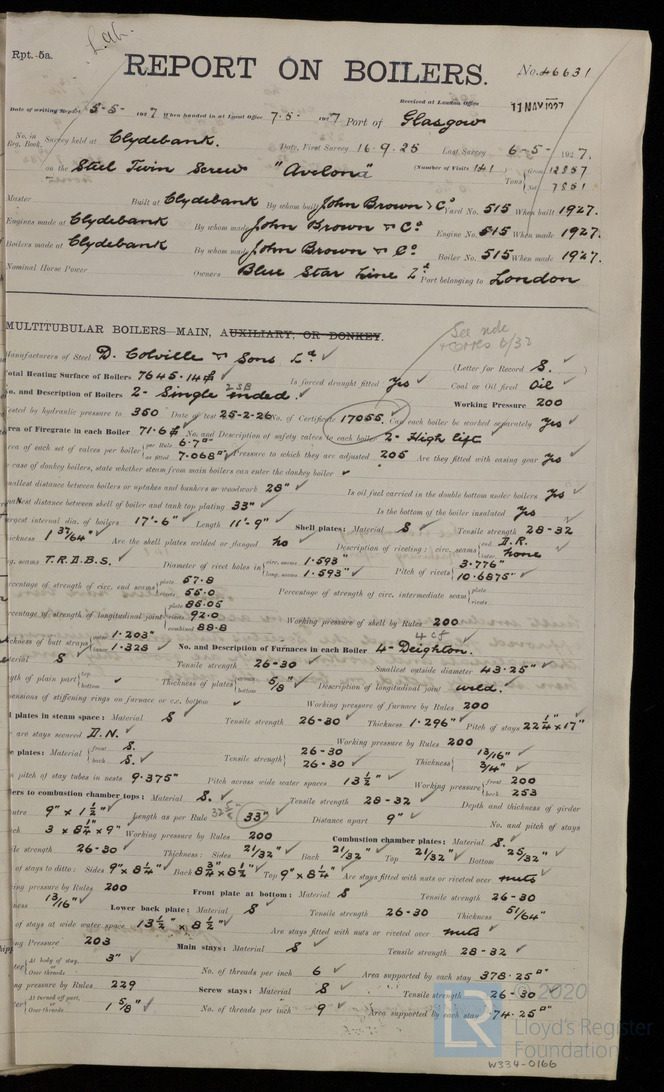 Lak.
Rpt. 5a.
REPORT ON BOILERS.
No. 46631
Received at London Office 11 MAY 1927
Date of writing Report 5-5- 1927 When handed in at Local Office 7.5- 1927 Port of Glasgow
No. in Reg. Book. Survey held at Clydebank. Date, First Survey 16-9-25 Last Survey 6-5- 1927.
on the Steel Twin Screw "Avelona" (Number of Visits 141) Tons Gross 12857 Net 7851
Master Built at Clydebank By whom built John Brown & Co Yard No. 515 When built 1927.
Engines made at Clydebank By whom made John Brown & Co. Engine No. 515 When made 1927.
Boilers made at Clydebank By whom made John Brown & Co. Boiler No. 515 When made 1927.
Nominal Horse Power Owners Blue Star Line Ld Port belonging to London
MULTITUBULAR BOILERS MAIN, AUXILIARY, OR DONKEY.
See
Manufacturers of Steel D. Colville & Sons Ld (Letter for Record S.)
Total Heating Surface of Boilers 7645.14 Is forced draught fitted Yes Coal or Oil fired Oil
No. and Description of Boilers 2- Single ended. 2SB Working Pressure 200
Tested by hydraulic pressure to 350 Date of test 25-2-26 No. of Certificate 17055. Can each boiler be worked separately Yes
Area of Firegrate in each Boiler 71.6 No. and Description of safety valves to each boiler 2- High lift
Area of each set of valves per boiler per Rule 6.7" as fitted 7.068" Pressure to which they are adjusted 205 Are they fitted with easing gear Yes
In case of donkey boilers, state whether steam from main boilers can enter the donkey boiler
Smallest distance between boilers or uptakes and bunkers or woodwork 28" Is oil fuel carried in the double bottom under boilers Yes
Smallest distance between shell of boiler and tank top plating 33" Is the bottom of the boiler insulated Yes
Largest internal dia. of boilers 17'-6" Length 11'-9" Shell plates: Material S Tensile strength 28-32
Thickness 1 37/64" Are the shell plates welded or flanged no Description of riveting: circ. seams end D.R. inter. none
long. seams T.R.D.B.S. Diameter of rivet holes in circ. seams 1.593 long. seams 1.593" Pitch of rivets 3.776" 10.6875"
Percentage of strength of circ. end seams plate 57.8 rivets 55.0 Percentage of strength of circ. intermediate seam plate rivets
Percentage of strength of longitudinal joint plate 85.05 rivets 92.0 combined 88.8 Working pressure of shell by Rules 200
Thickness of butt straps outer 1.203" inner 1.328 No. and Description of Furnaces in each Boiler 4- Deighton. 4 cf
Material S Tensile strength 26-30 Smallest outside diameter 43.25"
Length of plain part top bottom Thickness of plates crown bottom 5/8" Description of longitudinal joint weld.
Dimensions of stiffening rings on furnace or c.c. bottom Working pressure of furnace by Rules 200
End plates in steam space: Material S Tensile strength 26-30 Thickness 1.296" Pitch of stays 22 1/4 x 17"
How are stays secured D.N. Working pressure by Rules 200
Tube plates: Material front S. back S. Tensile strength 26-30 26-30 Thickness 13/16" 3/4"
Mean pitch of stay tubes in nests 9.375" Pitch across wide water spaces 13 1/2" Working pressure front 200 back 253
Girders to combustion chamber tops: Material S. Tensile strength 28-32 Depth and thickness of girder
at centre 9" x 1 1/2" Length as per Rule 33" Distance apart 9" No. and pitch of stays
in each 3 x 8 1/4 x 9" Working pressure by Rules 200 Combustion chamber plates: Material S.
Tensile strength 26-30 Thickness: Sides 21/32" Back 21/32" Top 21/32" Bottom 25/32"
Pitch of stays to ditto: Sides 9" x 8 1/4" Back 8 3/4 x 8 1/2" Top 9" x 8 1/4" Are stays fitted with nuts or riveted over nuts
Working pressure by Rules 200 Front plate at bottom: Material S Tensile strength 26-30
Thickness 13/16" Lower back plate: Material S Tensile strength 26-30 Thickness 51/64"
Pitch of stays at wide water space 13 1/2" x 8 1/2" Are stays fitted with nuts or riveted over nuts
Working Pressure 203 Main stays: Material S Tensile strength 28-32
Diameter At body of stay, or Over threads 3" No. of threads per inch 6 Area supported by each stay 378.25"
Working pressure by Rules 229 Screw stays: Material S Tensile strength 26-30
Diameter At turned off part, or Over threads 1 5/8" No. of threads per inch 9 Area supported by each stay 74.25"
LR © 2020
Lloyd's Register
Foundation
W334-0166